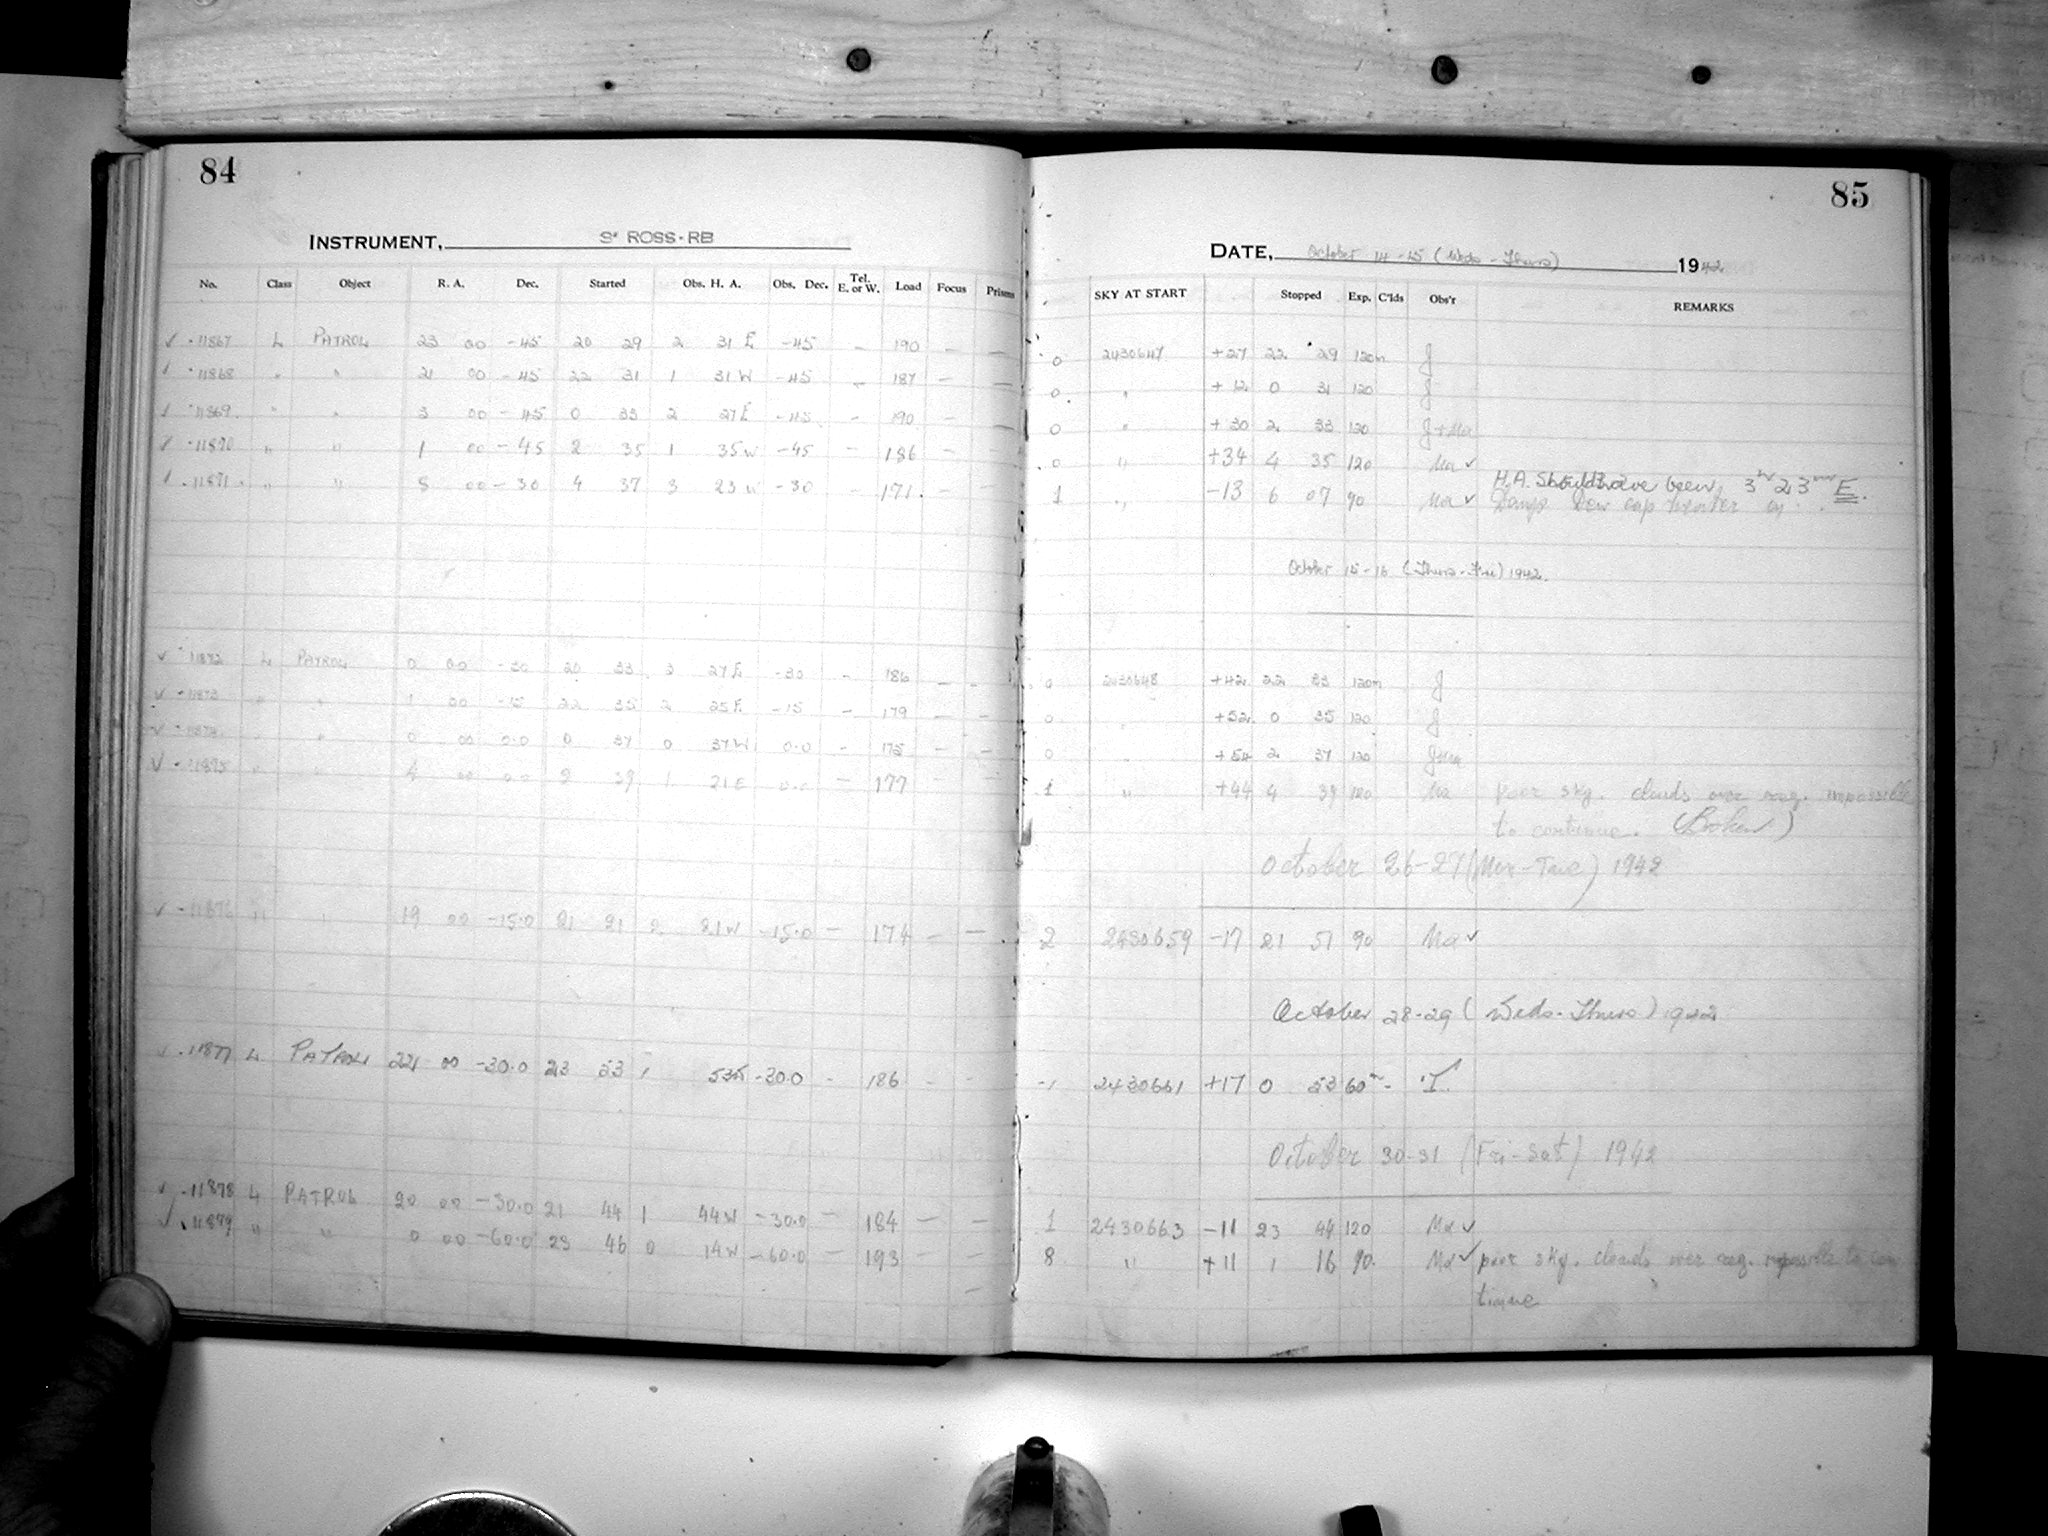 84
INSTRUMENT, 3" ROSS-RB
No. Class Object R. A. Dec. Started Obs. H. A. Obs. Dec. Tel. E. or W. Load Focus Prisms
✓ 11867 L PATROL 23 00 -45 20 29 2 31 E -45 - 190 - -
✓ 11868 " " 21 00 -45 22 31 1 31 W -45 - 187 - -
✓ 11869 " " 3 00 -45 0 33 2 27 E -45 - 190 - -
✓ 11870 " " 1 00 -45 2 35 1 35 W -45 - 186 - -
✓ 11871 " " 5 00 -30 4 37 3 23 W -30 171 - -
✓ 11872 L PATROL 0 00 -30 20 33 3 27 E -30 - 186 - -
✓ 11873 " " 1 00 -15 22 35 2 25 E -15 - 179 - -
✓ 11874 " " 0 00 0.0 0 37 0 37 W 0.0 - 175 - -
✓ 11875 " " 4 00 0.0 2 39 1 21 E 0.0 - 177 - -
✓ 11876 " " 19 00 -15.0 21 21 2 21 W -15.0 - 174 - -
✓ 11877 L PATROL 22 00 -30.0 23 53 1 53 -30.0 - 186 - -
✓ 11878 L PATROL 20 00 -30.0 21 44 1 44 W -30.0 - 184 - -
✓ 11879 " " 0 00 -60.0 23 46 0 14 W -60.0 - 193 - -
85
DATE, October 14-15 (Weds - Thurs) 1942
SKY AT START Stopped Exp. C'lds Obs'r REMARKS
0 2430647 +27 22 29 120m J
0 " +12 0 31 120 J
0 " +30 2 33 120 J + Ma
0 " +34 4 35 120 Ma ✓
H.A. Should have been 3h 23m E.
1 " -13 6 07 90 Ma ✓ Damp Dew cap heater on.
October 15-16 (Thurs - Fri) 1942.
0 2430648 +42 22 33 120m J
0 " +52 0 35 120 J
0 " +54 2 37 120 J+Ma
1 " +44 4 39 120 Ma poor sky. clouds over reg. impossible
to continue. (Broken)
October 26-27 (Mon-Tue) 1942
2 2430659 -17 21 51 90 Ma ✓
October 28-29 (Weds - Thurs) 1942
-1 2430661 +17 0 53 60m - I.
October 30-31 (Fri-Sat) 1942
1 2430663 -11 23 44 120 Ma ✓
8 " +11 1 16 90 Ma ✓ poor sky. clouds over reg. impossible to con
tinue